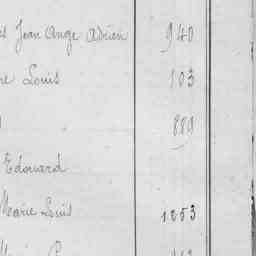 Jean Ange Adrien 940
Louis 103
889
Edouard
Marie Louis 1253